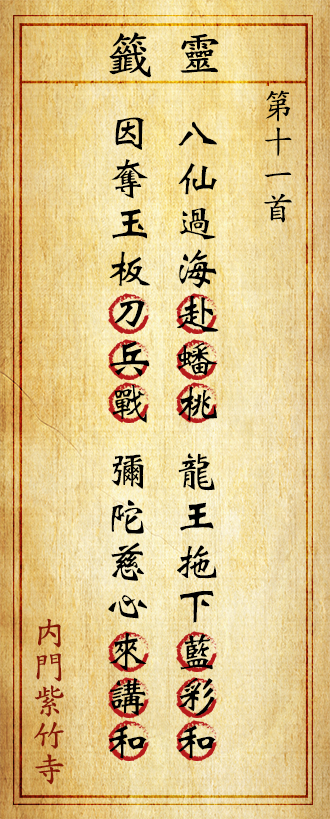 靈籤
第十一首
八仙過海赴蟠桃　龍王拖下藍彩和
因奪玉板刀兵戰　彌陀慈心來講和
内門紫竹寺